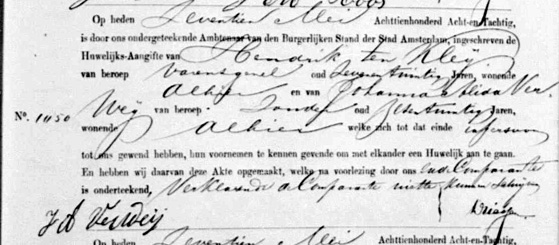 Op heden Zeventien Mei Achttienhonderd Acht-en-Tachtig,
is door ons ondergeteekende Ambtenaar van den Burgerlijken Stand der Stad Amsterdam, ingeschreven de
Huwelijks-Aangifte van Hendrik ten Kleij
van beroep varensgezel oud Zevenentwintig Jaren, wonende
Alhier en van Johanna Alida Ver-
Weij van beroep Zonder oud Jaren,
No. 1450
wonende Alhier welke zich tot dat einde in persoon
tot ons gewend hebben, hun voornemen te kennen gevende om met elkander een Huwelijk aan te gaan.
En hebben wij daarvan deze Akte opgemaakt, welke na voorlezing door ons en de Comparante
is onderteekend, Verklaarende de Comparant niet te kunnen schrijven
J A Verweij
Op heden Zeventien Mei Achttienhonderd Acht-en-Tachtig,